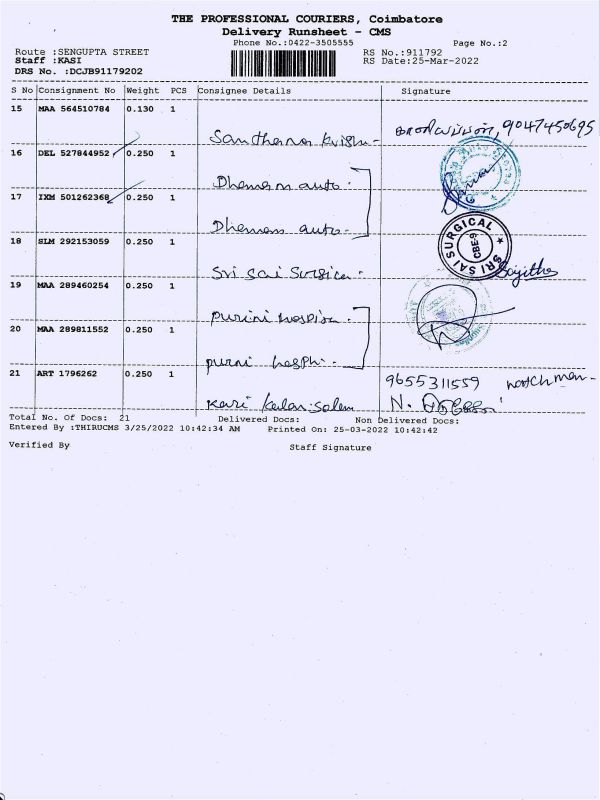 THE PROFESSIONAL COURIERS, Coimbatore
Delivery Runsheet - CMS
Phone No.:0422-3505555
Page No.:2
Route :SENGUPTA STREET
RS No.:911792
Staff :KASI
RS Date:25-Mar-2022
DRS No. :DCJB91179202
S No Consignment No Weight PCS Consignee Details Signature
15 MAA 564510784 0.130 1
9047450695
16 DEL 527844952 0.250 1
Dhemam auto
17 IXM 501262368 0.250 1
Dhemam auto
18 SLM 292153059 0.250 1
SRI SAI SURGICAL CBE-9
Sri sai Surgica
19 MAA 289460254 0.250 1
20 MAA 289811552 0.250 1
21 ART 1796262 0.250 1
9655311559 watch man
Total No. Of Docs: 21 Delivered Docs: Non Delivered Docs:
Entered By :THIRUCMS 3/25/2022 10:42:34 AM Printed On: 25-03-2022 10:42:42
Verified By Staff Signature